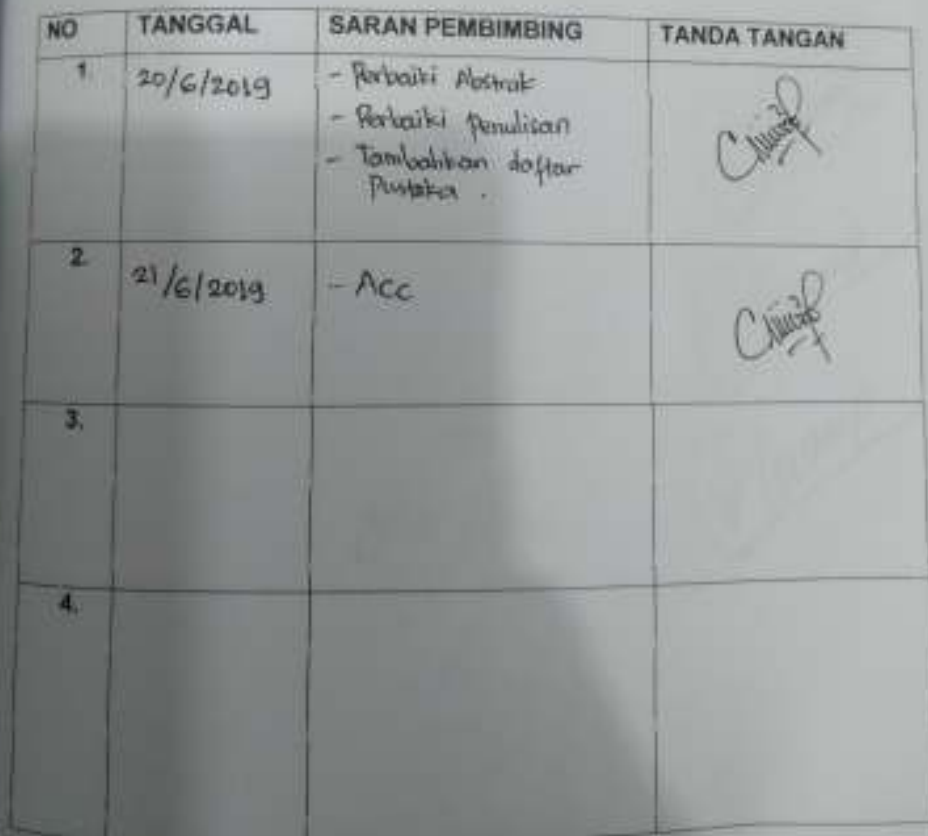 NO TANGGAL SARAN PEMBIMBING TANDA TANGAN
1. 20/6/2019 - Perbaiki Abstrak
- Perbaiki Penulisan
- Tambahkan daftar
Pustaka .
2. 21/6/2019 - Acc
3.
4.